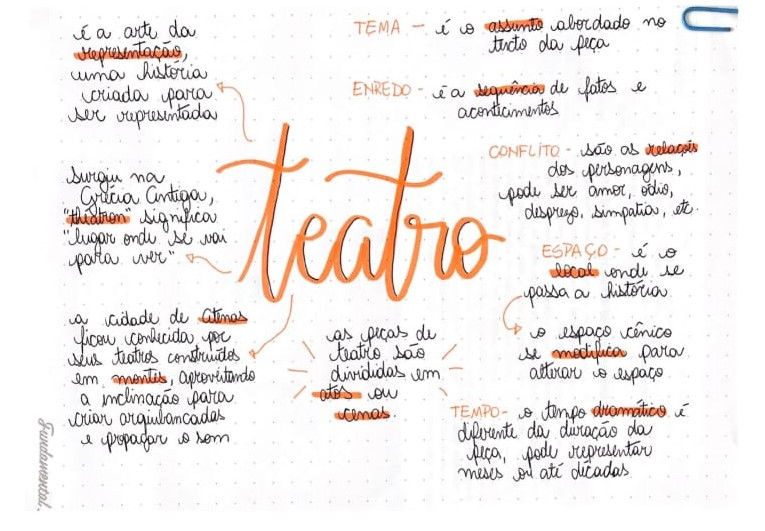 é a arte da
representação,
uma história
criada para
ser representada
surgiu na
Grécia Antiga,
"théatron" significa
"lugar onde se vai
para ver"
a cidade de Atenas
ficou conhecida por
seus teatros construídos
em montes, aproveitando
a inclinação para
criar arquibancadas
e propagar o som
teatro
as peças de
teatro são
divididas em
atos ou
cenas.
TEMA - é o assunto abordado no
texto da peça
ENREDO - é a sequência de fatos e
acontecimentos
CONFLITO - são as relações
dos personagens,
pode ser amor, ódio,
desprezo, simpatia, etc.
ESPAÇO - é o
local onde se
passa a história
o espaço cênico
se modifica para
alterar o espaço
TEMPO - o tempo dramático é
diferente da duração da
peça, pode representar
meses ou até décadas
Fundamental.